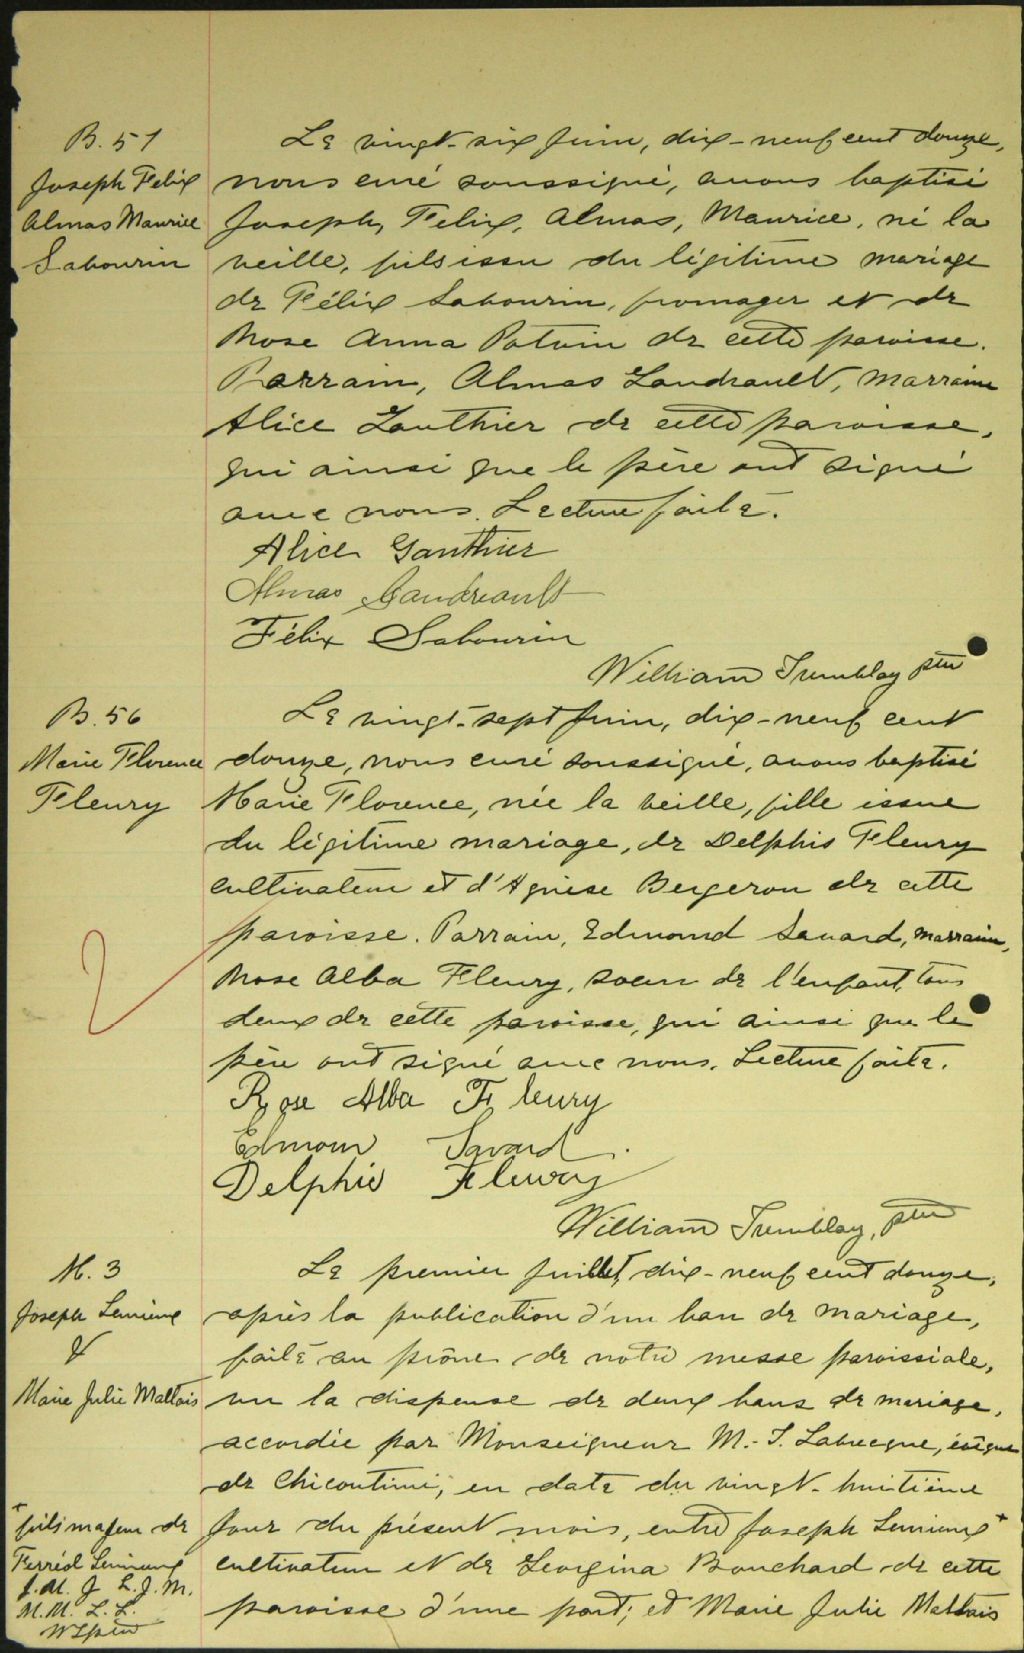 B. 51
Joseph Felix
Almas Maurice
Sabourin
Le vingt-six Juin, dix-neuf cent douze,
nous curé soussigné, avons baptisé
Joseph, Felix, Almas, Maurice, né la
veille, fils issu du légitime mariage
de Félix Sabourin, fromager et de
Rose Anna Potvin de cette paroisse.
Parrain, Almas Gaudrault, marraine
Alice Gauthier de cette paroisse,
qui ainsi que le père ont signé
avec nous. Lecture faite.
Alice Gauthier
Almas Gaudreault
Félix Sabourin
William Tremblay ptre
B. 56
Marie Florence
Fleury
Le vingt-sept Juin, dix-neuf cent
douze, nous curé soussigné, avons baptisé
Marie Florence, née la veille, fille issue
du légitime mariage, de Delphis Fleury
cultivateur et d'Agnèse Bergeron de cette
paroisse. Parrain, Edmond Savard, marraine,
Rose Alba Fleury, soeur de l'enfant, tous
deux de cette paroisse, qui ainsi que le
père ont signé avec nous. Lecture faite.
Rose Alba Fleury
Edmour Savard
Delphis Fleury
William Tremblay, ptre
M. 3
Joseph Lemieux
&
Marie Julie Maltais
Le premier Juillet, dix-neuf cent douze,
après la publication d'un ban de mariage,
faite au prône de notre messe paroissiale,
vu la dispense de deux bans de mariage,
accordée par Monseigneur M.-T. Labrecque, évêque
de Chicoutimi, en date du vingt-huitième
jour du présent mois, entre Joseph Lemieux +
cultivateur et de Georgina Bouchard de cette
paroisse d'une part; et Marie Julie Maltais
+ fils majeur de
Ferréol Lemieux
J. M. J L. J. M.
M. M. L. L.
W T ptre